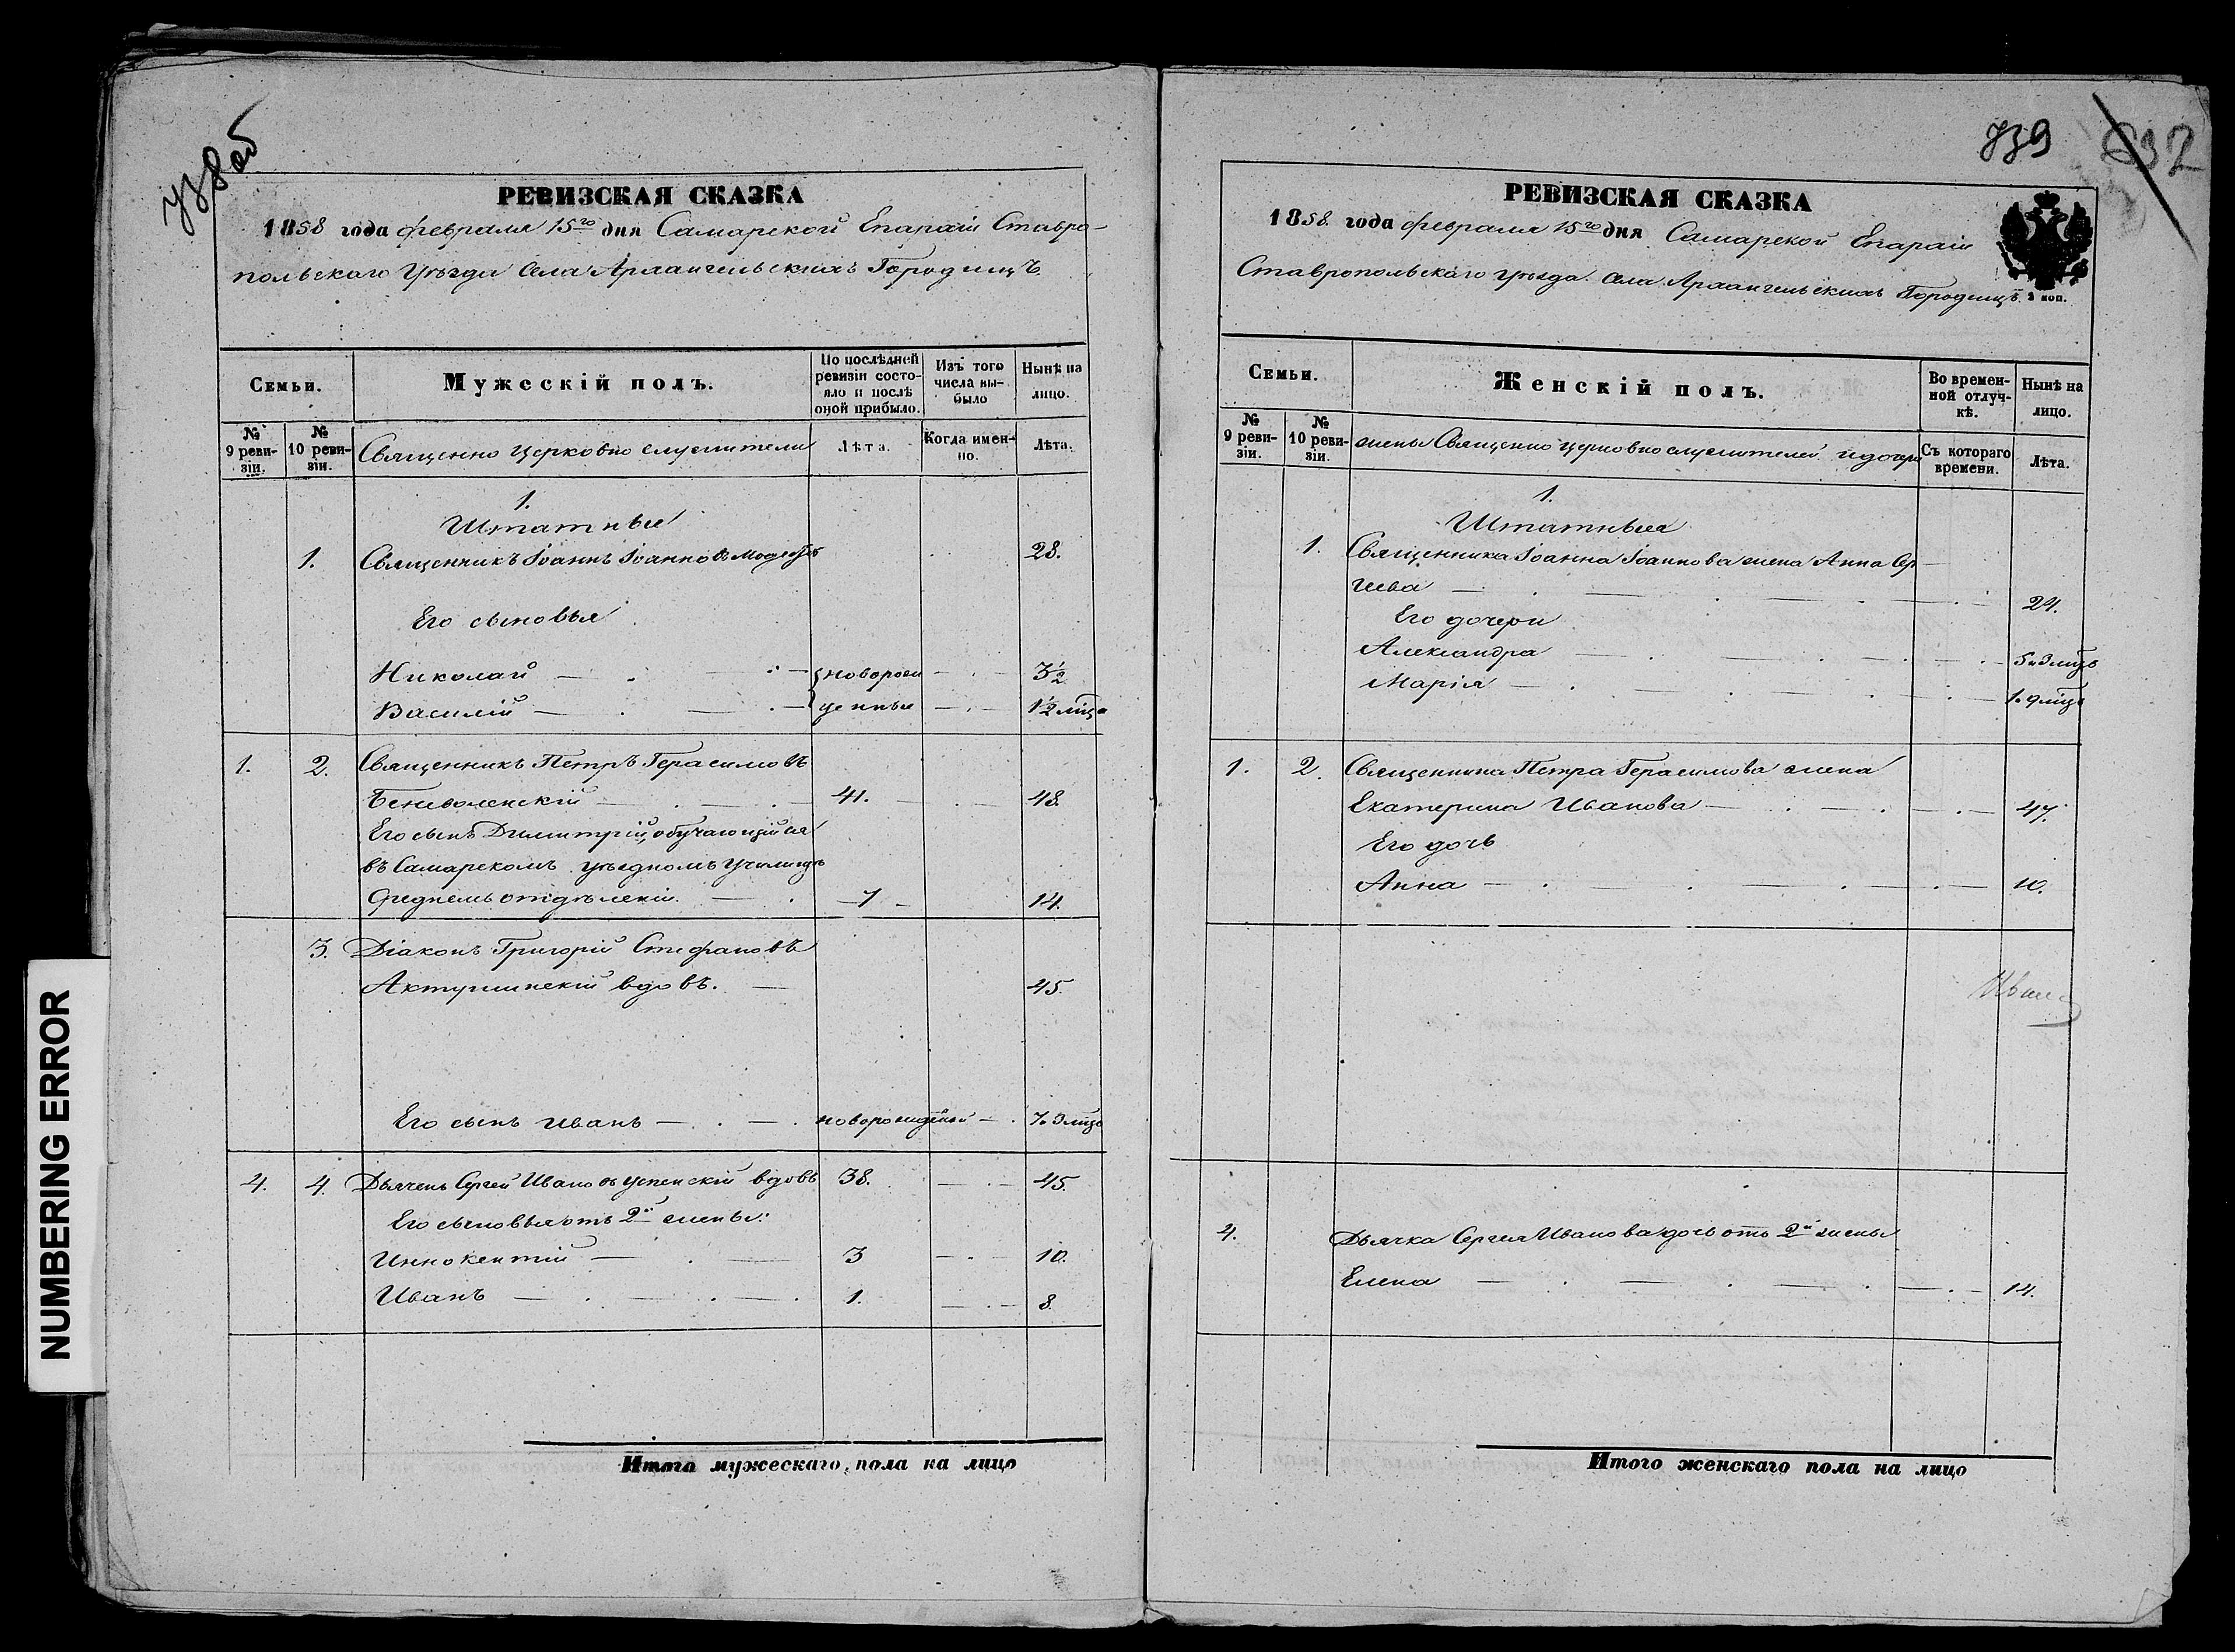 738 об
РЕВИЗСКАЯ СКАЗКА
1858 года февраля 15го дня Самарской Епархіи Ставро-
польскаго Уѣзда Села Архангельскихъ Городищъ
Семьи.
Мужескій полъ.
По послѣдней ревизіи состо-яло и послѣ оной прибыло.
Изъ того числа вы-было
Нынѣ на лицо.
№ 9 реви-зіи.
№ 10 реви-зіи.
Священно церковно служители
Лѣта.
Когда имен-но.
Лѣта.
1.
Штатные
1. Священникъ Іоаннъ Іоанновъ 28.
Его сыновья
Николай — новорож 3½
Василій — денные 1½ мѣца
1. 2. Священникъ Петръ Герасимовъ
Беневоленскій — 41. — 48.
Его сынъ Димитрій, обучающійся
въ Самарскомъ уѣздномъ Училищѣ
среднемъ отдѣленіи. — 7 — 14.
3. Діаконъ Григорій Стефановъ
Актушинскій вдовъ. — 45.
Его сынъ Иванъ — новорожденный — 7. 3 мѣц
4. 4. Дьячекъ Сергей Ивановъ Успенскій вдовъ 38. — 45.
Его сыновья отъ 2й жены:
Иннокентій — 3 — 10.
Иванъ — 1. — 8.
Итого мужескаго пола на лицо
739
632
РЕВИЗСКАЯ СКАЗКА
1858. года февраля 15го дня Самарской Епархіи
Ставропольскаго уѣзда. Села Архангельскихъ Городищъ.
коп.
Семьи.
Женскій полъ.
Во времен-ной отлуч-кѣ.
Нынѣ на лицо.
№ 9 реви-зіи.
№ 10 реви-зіи.
жены Священно церковно служителей и дочери
Съ котораго времени.
Лѣта.
1.
Штатныя
1. Священника Іоанна Іоаннова жена Анна Сер
геева — 24.
Его дочери
Александра — 5 и 3 мѣц
Марія — 1. 9 мѣц
1. 2. Священника Петра Герасимова жена
Екатерина Иванова — 47.
Его дочь
Анна — 10.
4. Дьячка Сергея Иванова дочь отъ 2й жены
Елена — 14.
Итого женскаго пола на лицо
NUMBERING ERROR